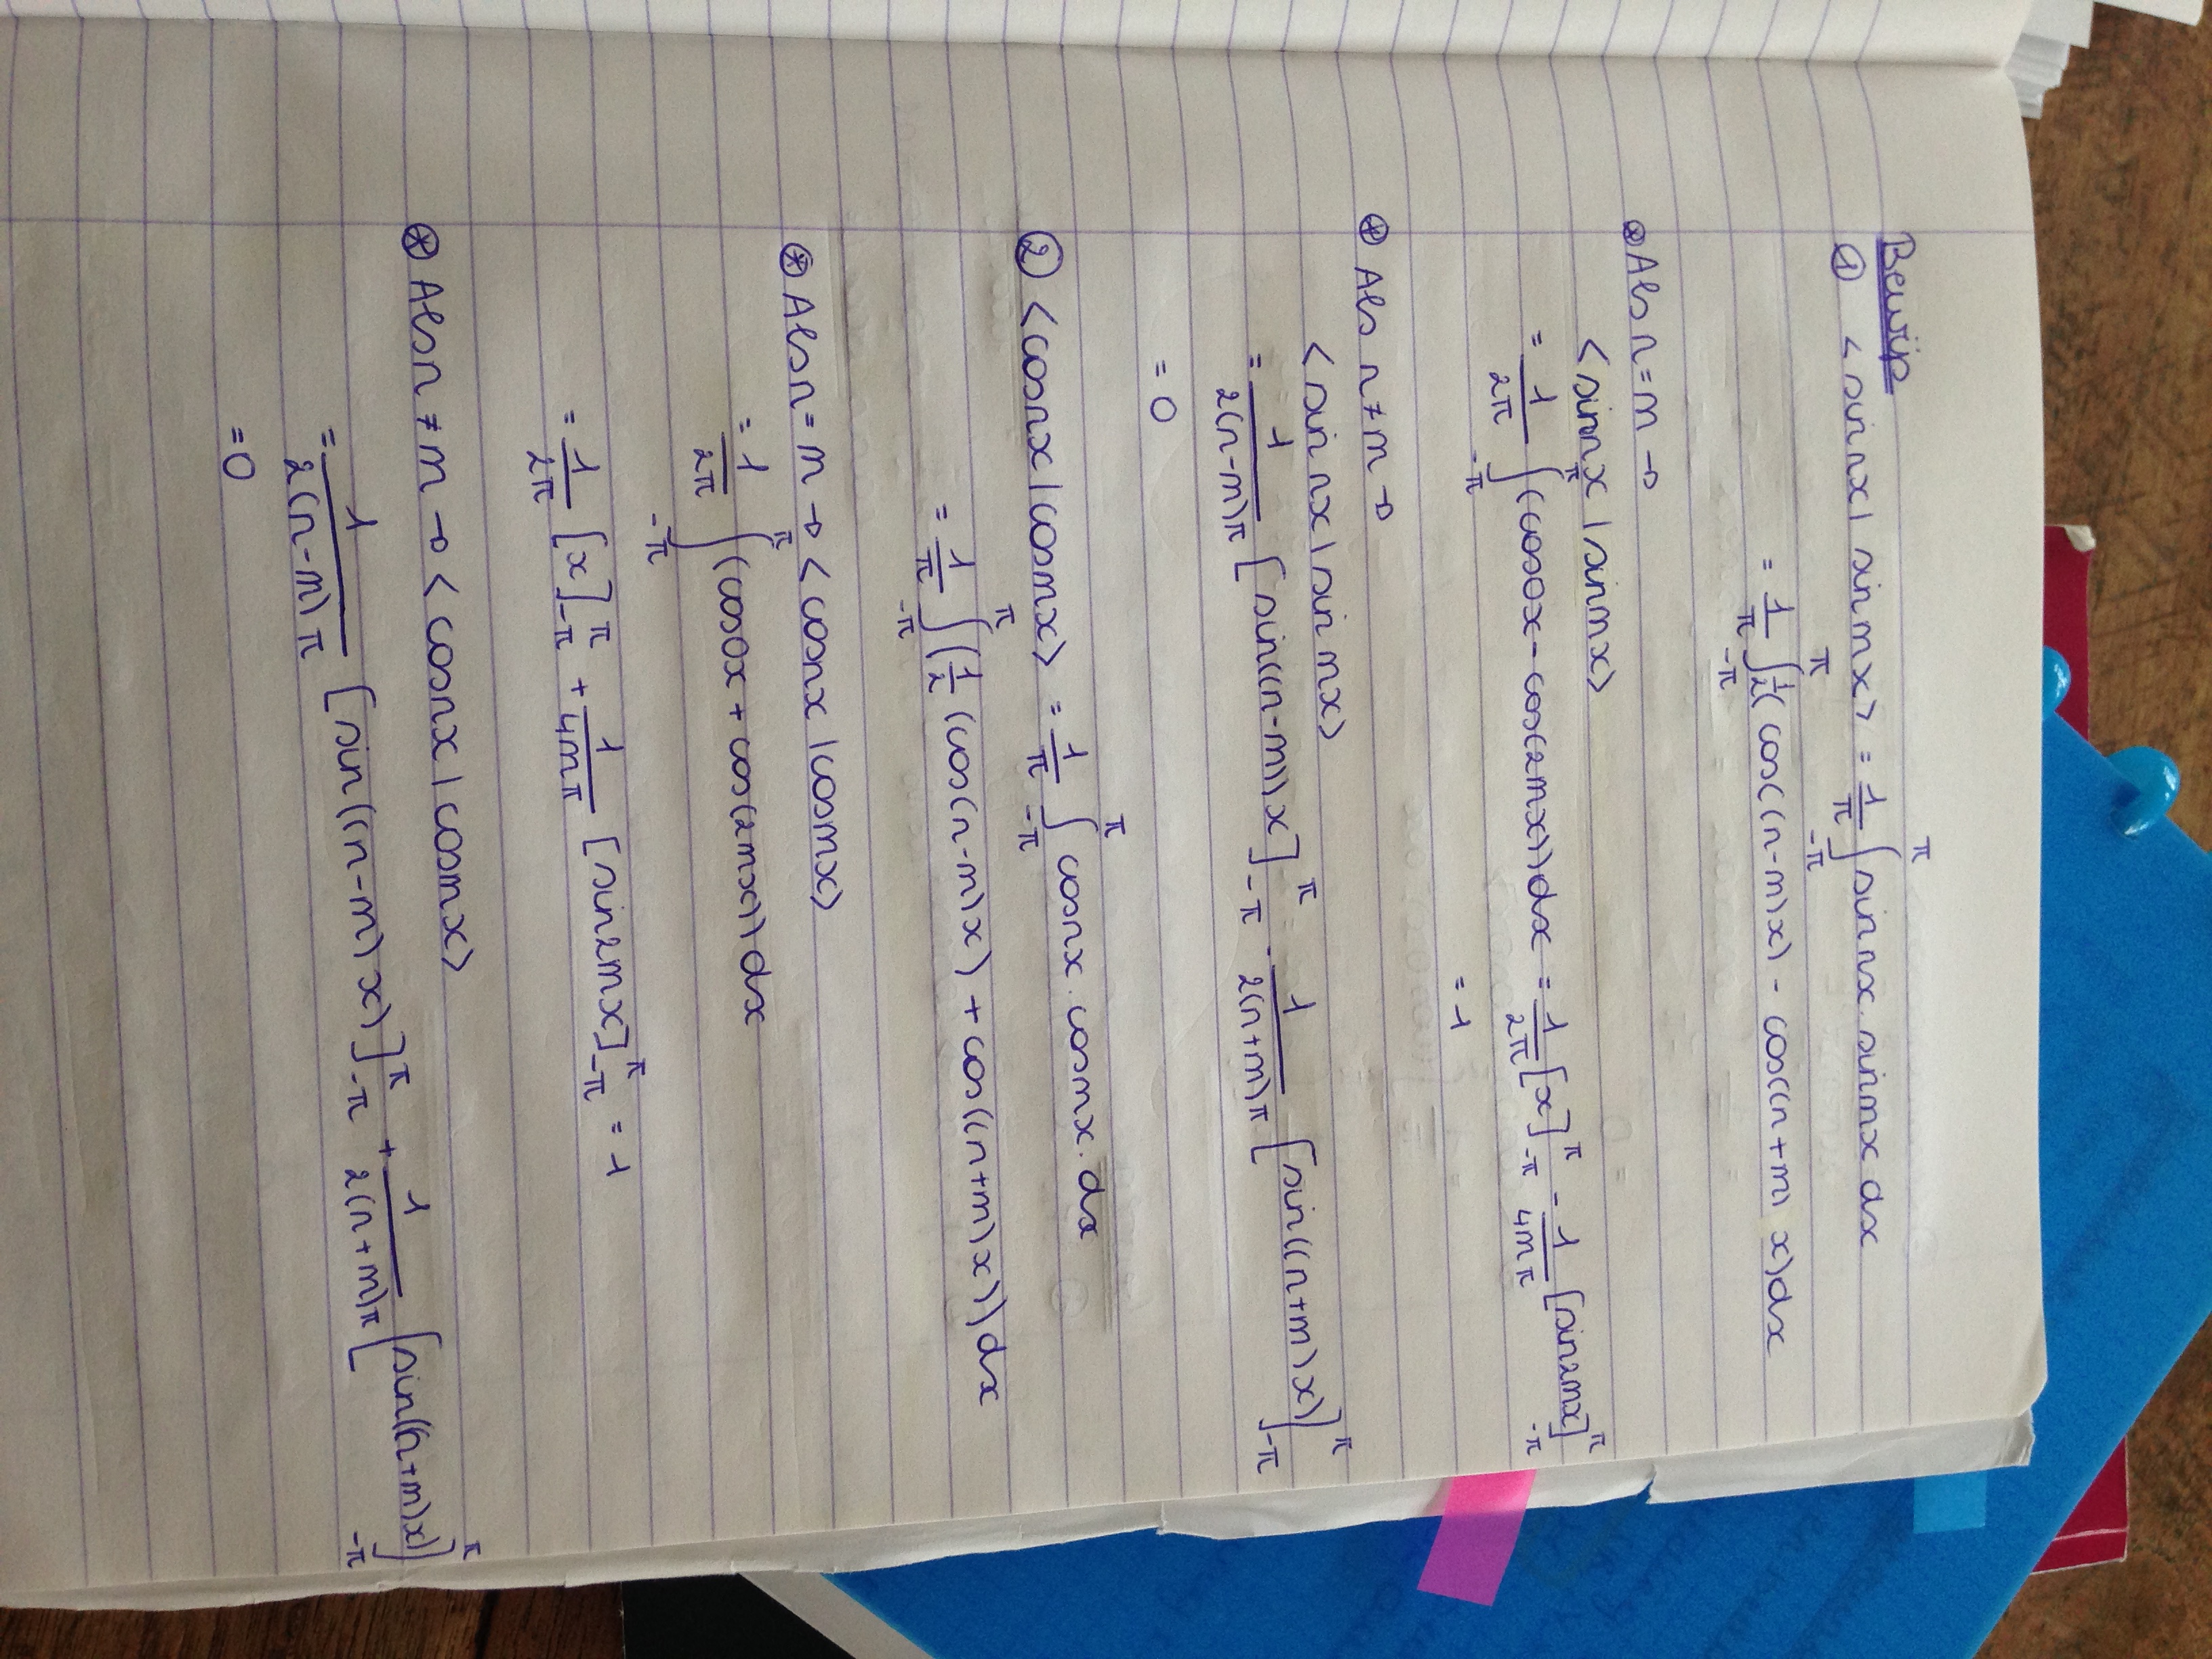 Bewijs
① <sin nx | sin mx> = 1/π ∫_{-π}^{π} sin nx . sin mx dx
= 1/π ∫_{-π}^{π} 1/2( cos((n-m)x) - cos((n+m) x)dx
⊛ Als n = m →
<sin nx | sin mx>
= 1/2π ∫_{-π}^{π} (cos0x - cos(2mx))dx = 1/2π [x]_{-π}^{π} - 1/4mπ [sin2mx]_{-π}^{π}
= 1
⊛ Als n ≠ m →
<sin nx | sin mx>
= 1/2(n-m)π [sin((n-m))x]_{-π}^{π} - 1/2(n+m)π [sin((n+m)x)]_{-π}^{π}
= 0
② <cosnx | cosmx> = 1/π ∫_{-π}^{π} cosnx . cosmx . dx
= 1/π ∫_{-π}^{π} (1/2 (cos(n-m)x) + cos((n+m)x))dx
⊛ Als n = m → <cosnx | cosmx>
= 1/2π ∫_{-π}^{π} (cos0x + cos(2mx))dx
= 1/2π [x]_{-π}^{π} + 1/4mπ [sin2mx]_{-π}^{π} = 1
⊛ Als n ≠ m → <cosnx | cosmx>
= 1/2(n-m)π [sin((n-m)x)]_{-π}^{π} + 1/2(n+m)π [sin((n+m)x)]_{-π}^{π}
= 0